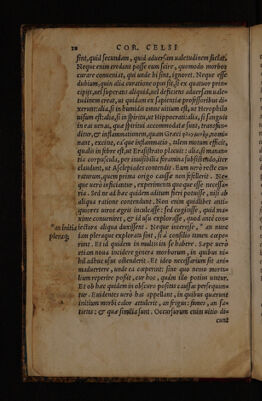 22 COR. CELSI
sint, quid secundum, quid adversum valetudinem faciat.
Neque enim credunt posse eum scire, quomodo morbos
curare conveniat, qui unde hi sint, ignoret. Neque esse
dubium, quin alia curatione opus sit, si ex quatuor prin-
cipijs, vel superans aliquid, vel deficiens adversam vale-
tudinem creat, ut quidam ex sapientiæ professoribus di-
xerunt: alia, si in humidis omne vitium est, ut Herophilo
visum est: alia, si in spiritu, ut Hippocrati: alia, si sanguis
in eas venas, quæ spiritui accommodatæ sunt, transfun-
ditur, & inflammationem, quam Græci nomi-
nant, excitat, eáque inflammatio talem motum efficit,
qualis in febre est, ut Erasistrato placuit: alia, si manan-
tia corpuscula, per invisibilia foramina subsistendo, iter
claudunt, ut Asclepiades contendit. Eum verò recte cu-
raturum, quem prima origo causæ non fefellerit. Ne-
que verò inficiantur, experimentis quoque esse necessa-
ria. Sed ne ad hæc quidem aditum fieri potuisse, nisi ab
aliqua ratione contendunt. Non enim quidlibet anti-
quiores viros ægris inculcasse: sed cogitasse, quid ma-
xime conveniret, & id usu explorasse, quod ante con-
*an initia iectura aliqua duxisset. Neque interesse, * an nunc
pleraq; iam pleraque explorata sint, si à consilio tamen cœpe-
runt. Et id quidem in multis ita se habere. Sæpe verò
etiam nova incidere genera morborum, in quibus ni-
hil adhuc usus ostenderit. Et ideo necessarium sit ani-
madvertere, unde ea cœperint: sine quo nemo morta-
lium reperire possit, cur hoc, quàm illo potius utatur.
Et ob hæc quidem in obscuro positas causas persequun-
tur. Evidentes verò has appellant, in quibus quærunt
initium morbi calor attulerit, an frigus: fames, an sa-
tietas: & quæ similia sunt. Occursurum enim vitio di-
cunt